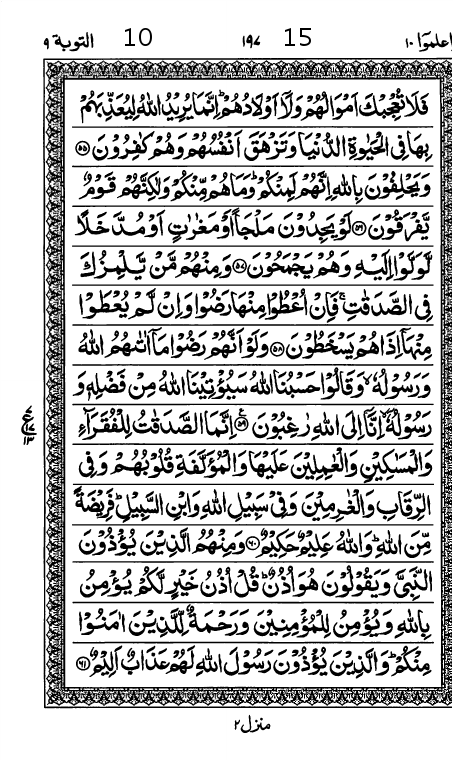 اعلموا ١٠ 15 ١٩٧ 10 التوبة ٩
فَلَا تُعْجِبْكَ اَمْوَالُهُمْ وَلَاۤ اَوْلَادُهُمْ ؕ اِنَّمَا يُرِيْدُ اللّٰهُ لِيُعَذِّبَهُمْ
بِهَا فِى الْحَيٰوةِ الدُّنْيَا وَتَزْهَقَ اَنْفُسُهُمْ وَهُمْ كٰفِرُوْنَ ﴿٥٥﴾
وَيَحْلِفُوْنَ بِاللّٰهِ اِنَّهُمْ لَمِنْكُمْ ؕ وَمَا هُمْ مِّنْكُمْ وَلٰكِنَّهُمْ قَوْمٌ
يَّفْرَقُوْنَ ﴿٥٦﴾ لَوْ يَجِدُوْنَ مَلْجَاً اَوْ مَغٰرٰتٍ اَوْ مُدَّخَلًا
لَّوَلَّوْا اِلَيْهِ وَهُمْ يَجْمَحُوْنَ ﴿٥٧﴾ وَمِنْهُمْ مَّنْ يَّلْمِزُكَ
فِى الصَّدَقٰتِ ۚ فَاِنْ اُعْطُوْا مِنْهَا رَضُوْا وَاِنْ لَّمْ يُعْطَوْا
مِنْهَاۤ اِذَا هُمْ يَسْخَطُوْنَ ﴿٥٨﴾ وَلَوْ اَنَّهُمْ رَضُوْا مَاۤ اٰتٰىهُمُ اللّٰهُ
وَرَسُوْلُهٗ ۙ وَقَالُوْا حَسْبُنَا اللّٰهُ سَيُؤْتِيْنَا اللّٰهُ مِنْ فَضْلِهٖ وَ
رَسُوْلُهٗۤ ۙ اِنَّاۤ اِلَى اللّٰهِ رٰغِبُوْنَ ﴿٥٩﴾ اِنَّمَا الصَّدَقٰتُ لِلْفُقَرَآءِ
وَالْمَسٰكِيْنِ وَالْعٰمِلِيْنَ عَلَيْهَا وَالْمُؤَلَّفَةِ قُلُوْبُهُمْ وَفِى
الرِّقَابِ وَالْغٰرِمِيْنَ وَفِىْ سَبِيْلِ اللّٰهِ وَابْنِ السَّبِيْلِ ؕ فَرِيْضَةً
مِّنَ اللّٰهِ ؕ وَاللّٰهُ عَلِيْمٌ حَكِيْمٌ ﴿٦٠﴾ وَمِنْهُمُ الَّذِيْنَ يُؤْذُوْنَ
النَّبِىَّ وَيَقُوْلُوْنَ هُوَ اُذُنٌ ؕ قُلْ اُذُنُ خَيْرٍ لَّكُمْ يُؤْمِنُ
بِاللّٰهِ وَيُؤْمِنُ لِلْمُؤْمِنِيْنَ وَرَحْمَةٌ لِّلَّذِيْنَ اٰمَنُوْا
مِنْكُمْ ؕ وَالَّذِيْنَ يُؤْذُوْنَ رَسُوْلَ اللّٰهِ لَهُمْ عَذَابٌ اَلِيْمٌ ﴿٦١﴾
منزل ٢